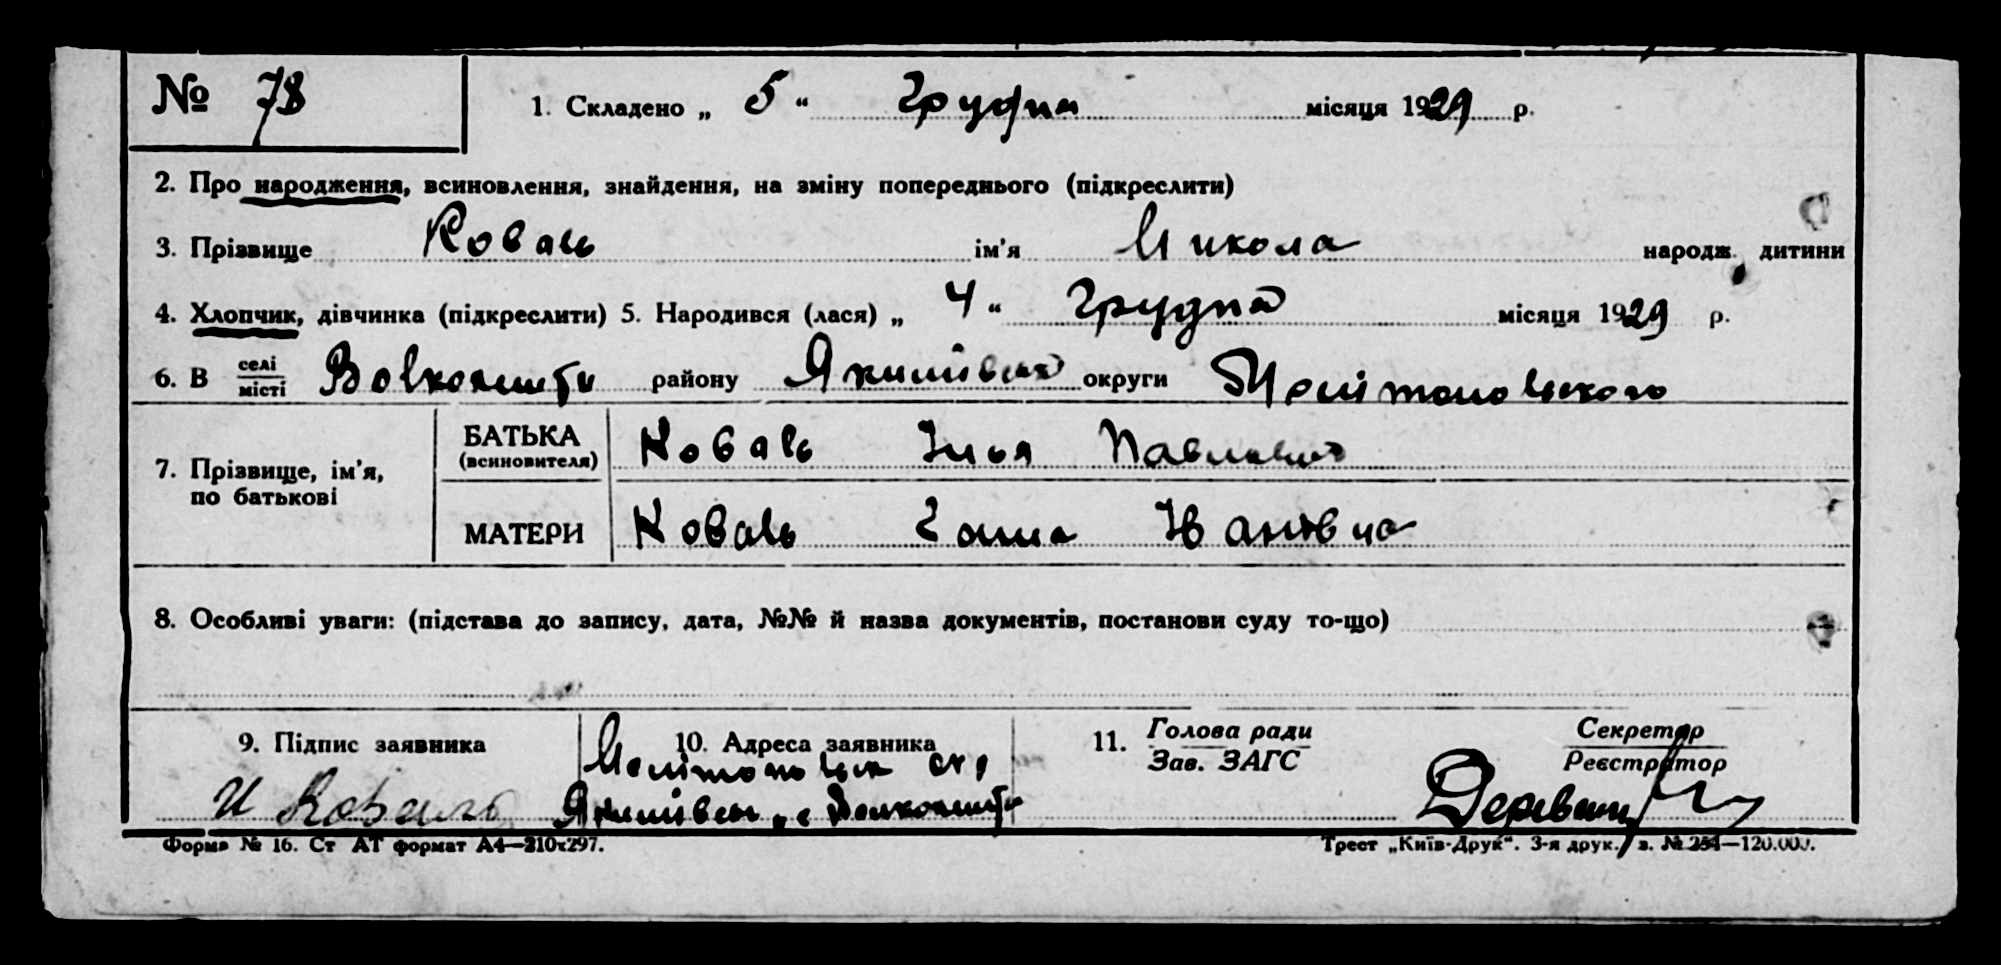 № 78
1. Складено „ 5 “ Грудня місяця 1929 р.
2. Про народження, всиновлення, знайдення, на зміну попереднього (підкреслити)
3. Прізвище Коваль ім'я Микола народж. дитини
4. Хлопчик, дівчинка (підкреслити) 5. Народився (лася) „ 4 “ Грудня місяця 1929 р.
6. В селі
місті району Якимівськ округи Мелітопольського
7. Прізвище, ім'я, по батькові
БАТЬКА (всиновителя) Коваль Ілья Павлович
МАТЕРИ Коваль Ганна Іванівна
8. Особливі уваги: (підстава до запису, дата, №№ й назва документів, постанови суду то-що)
9. Підпис заявника
И Коваль
10. Адреса заявника
Мелітопольск окр
Якимівськ
11. Голова ради
Зав. ЗАГС
Секретар
Реєстратор
Форма № 16. Ст АТ формат А4—210х297.
Трест „Київ-Друк“. 3-я друк. з. № 254—120.000.